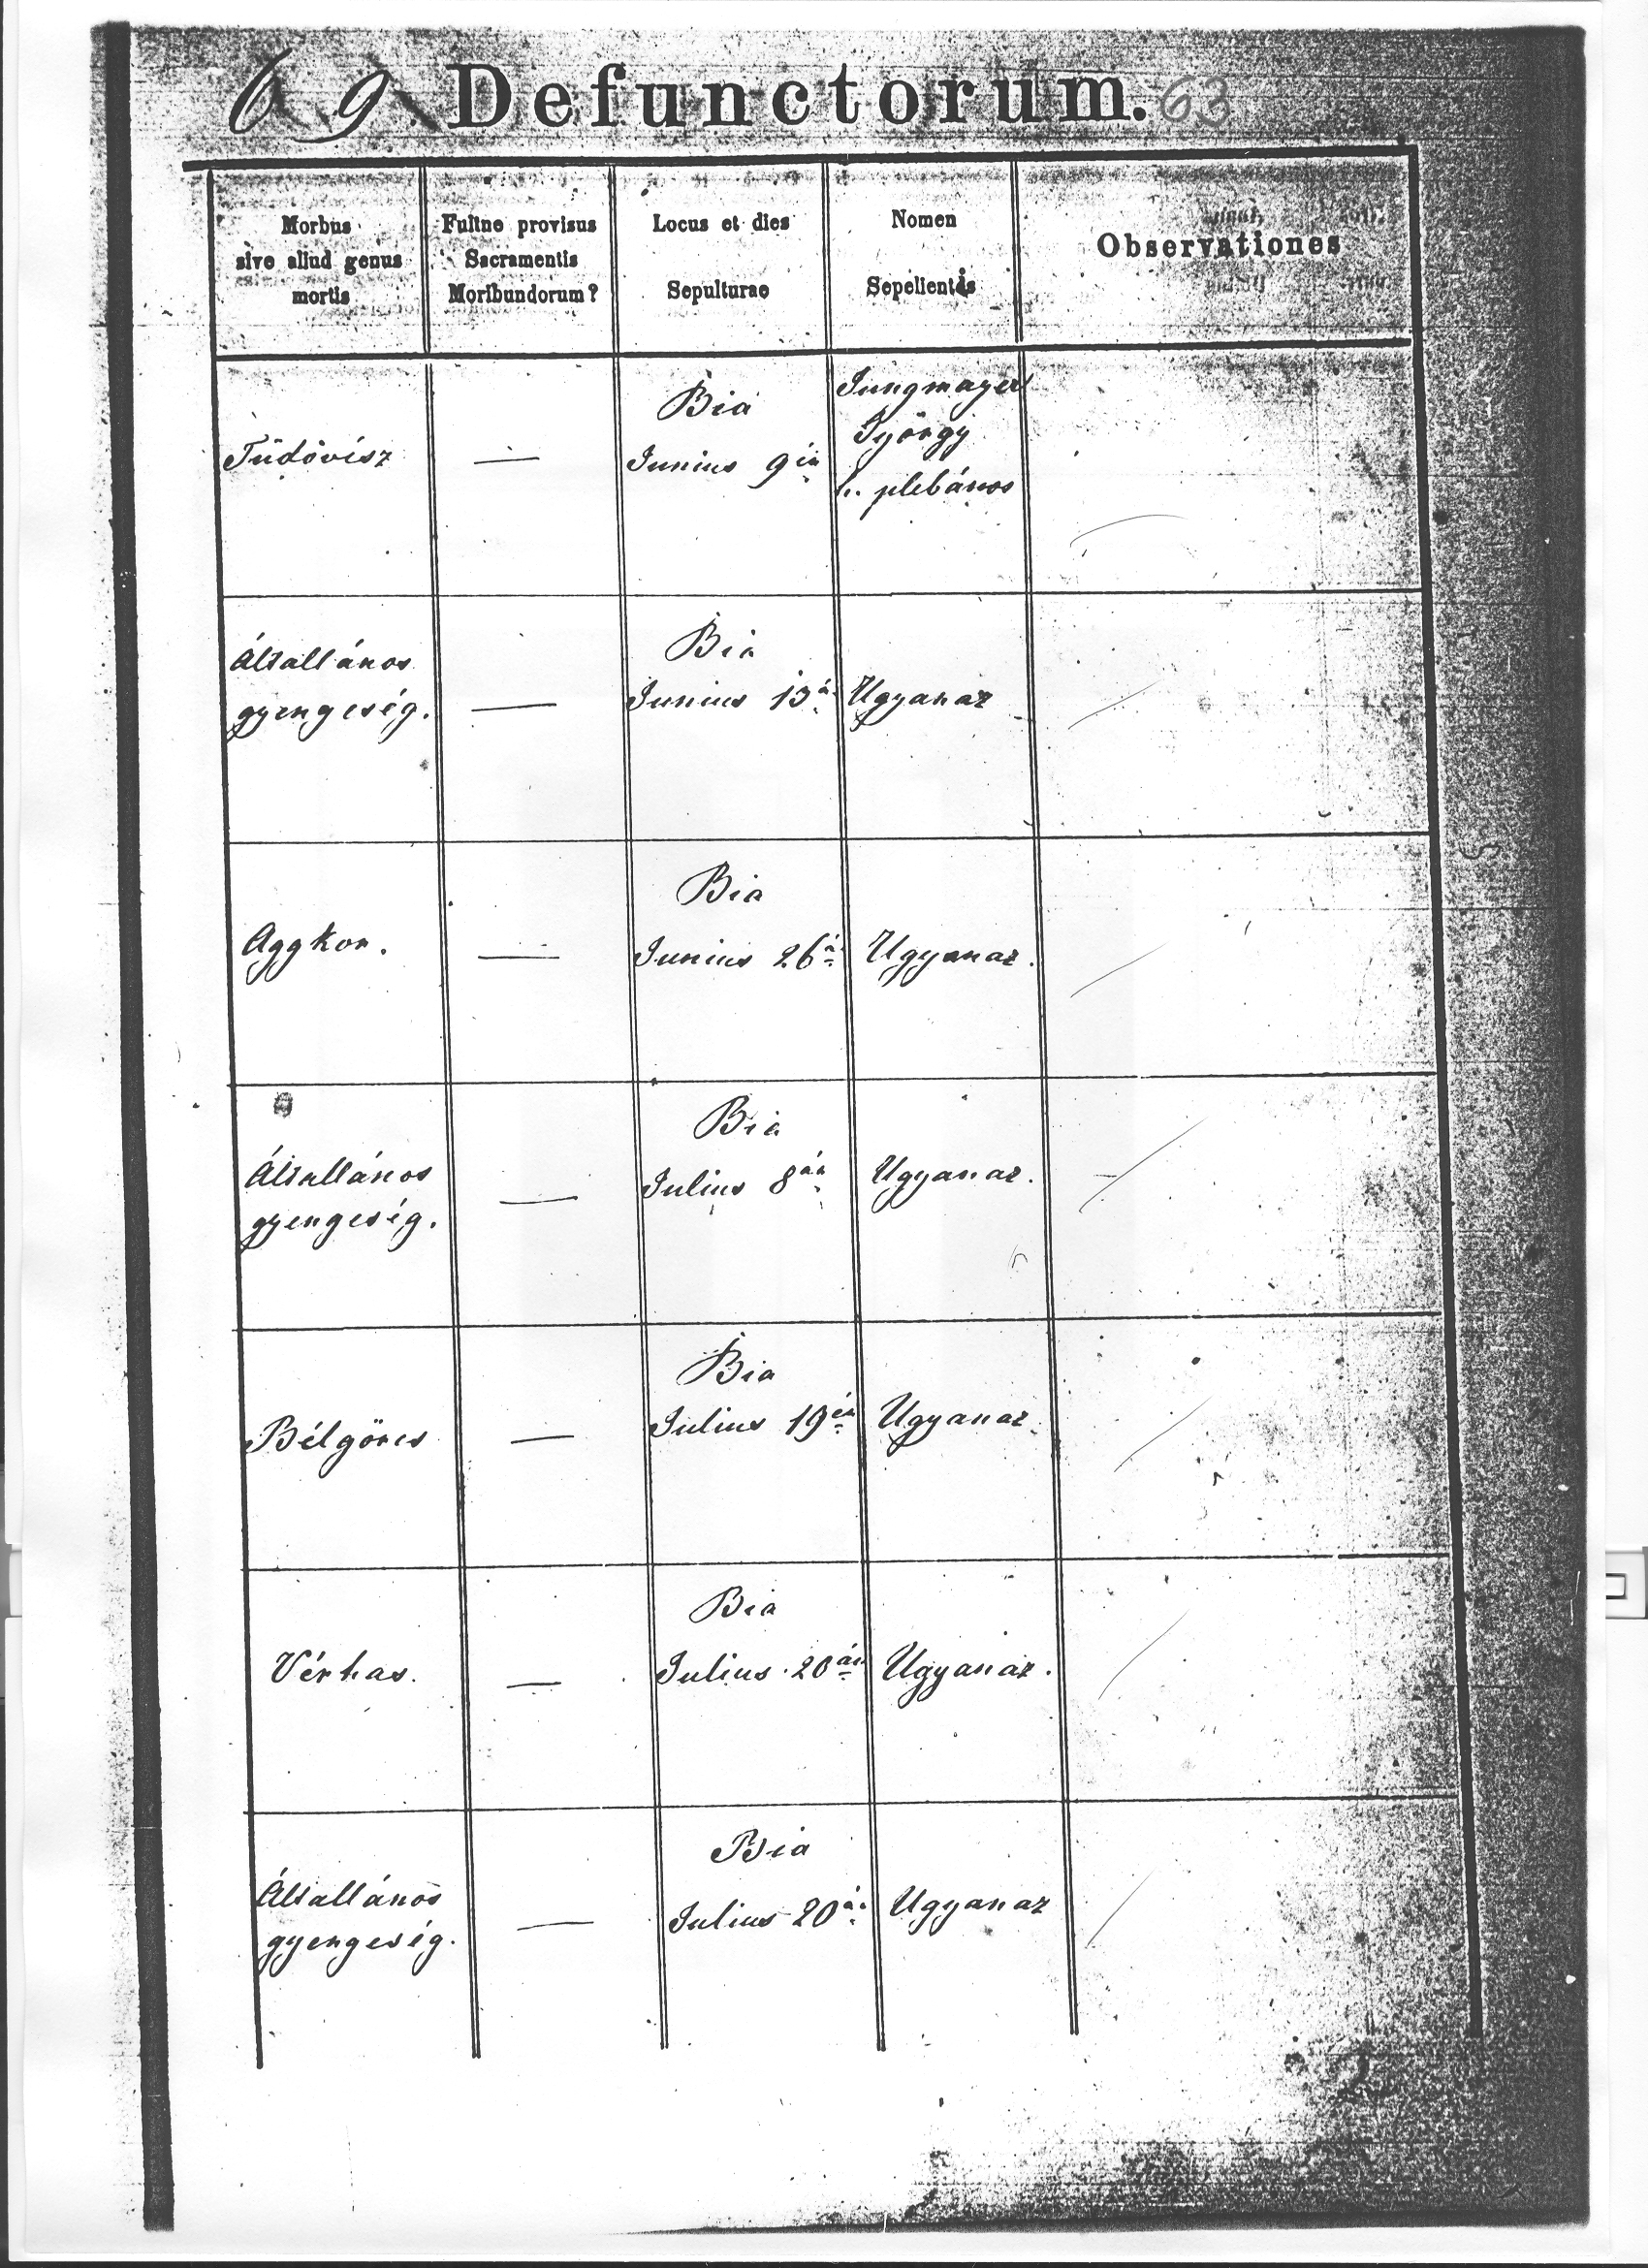 69. Defunctorum. 63
Morbus
sive aliud genus
mortis
Fuitne provisus
Sacramentis
Moribundorum?
Locus et dies
Sepulturae
Nomen
Sepelientis
Observationes
Tüdővész
—
Bia
Junius 9én
Jungmayer
György
h. plébános
Általlános
gyengeség.
—
Bia
Junius 13á
Ugyanaz
Aggkor.
—
Bia
Junius 26á
Ugyanaz.
Általlános
gyengeség.
—
Bia
Julius 8án
Ugyanaz.
Bélgörcs
—
Bia
Julius 19én
Ugyanaz.
Vérhas.
—
Bia
Julius 20án
Ugyanaz.
Általlános
gyengeség.
—
Bia
Julius 20án
Ugyanaz